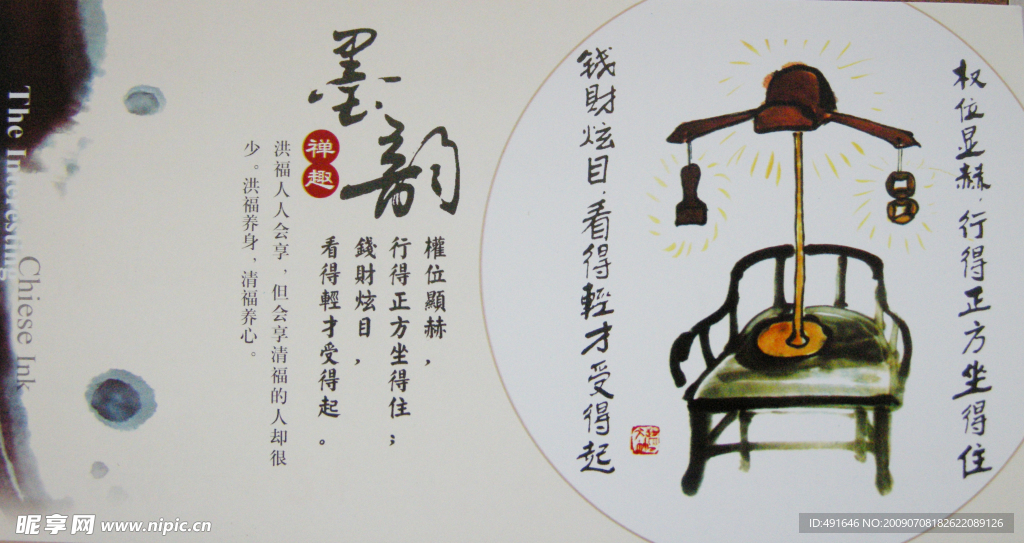 The Interesting
Chiese Ink
墨韵
禅趣
洪福人人会享，但会享清福的人却很
少。洪福养身，清福养心。
權位顯赫，
行得正方坐得住；
錢財炫目，
看得輕才受得起。
权位显赫，行得正方坐得住
錢財炫目，看得輕才受得起
昵享网 www.nipic.cn
ID:491646 NO:20090708182622089126